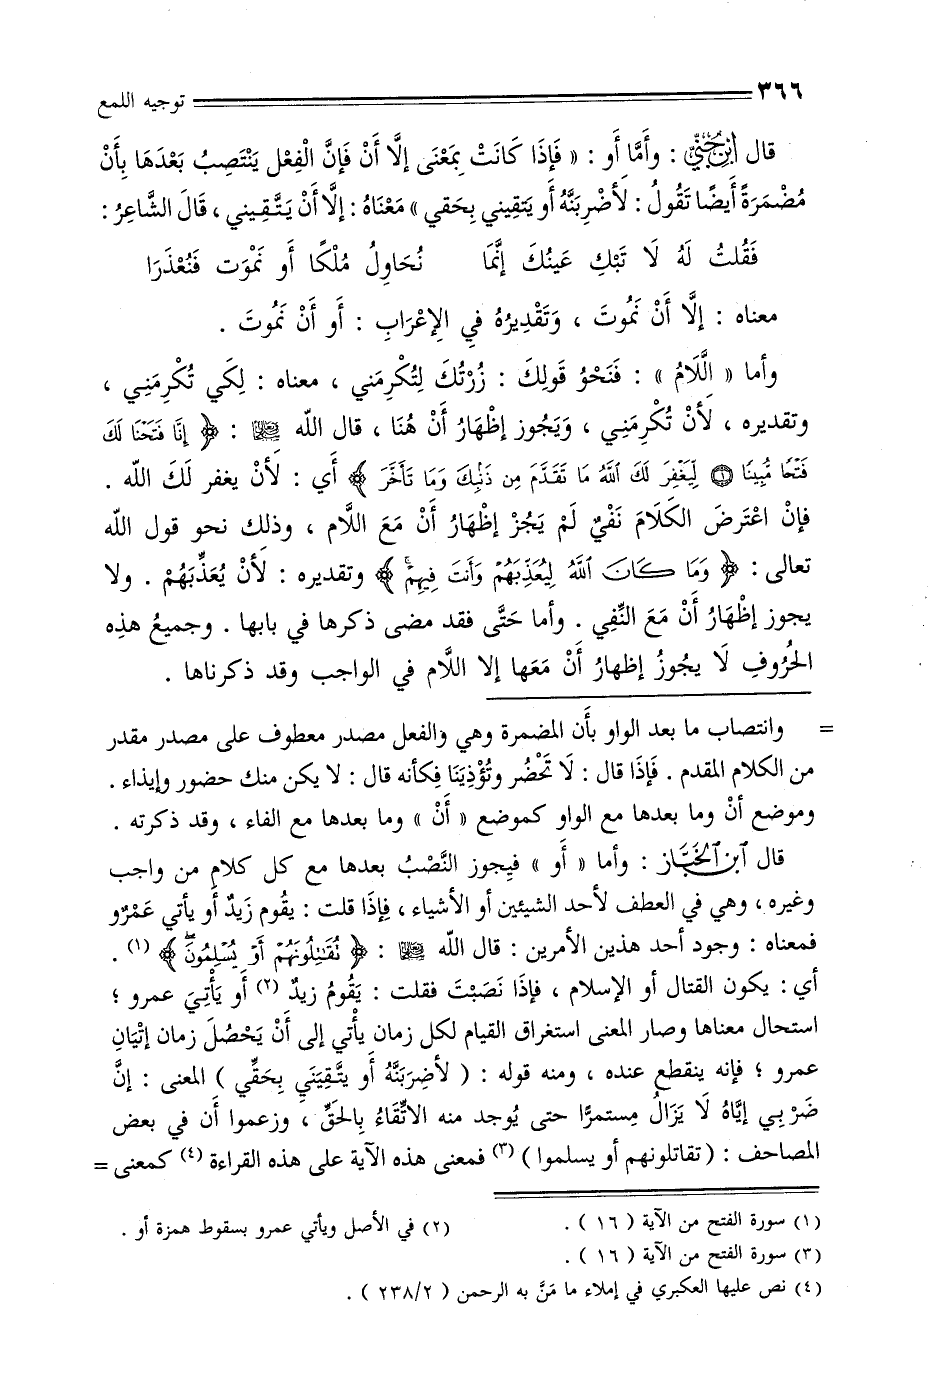 ٣٦٦ توجيه اللمع
قال ابن جني : وأَمَّا أَو : « فَإِذَا كَانَتْ بِمَعْنَى إلَّا أَنْ فَإِنَّ الْفِعْل يَنْتَصِبُ بَعْدَهَا بِأَنْ
مُضْمَرَةً أَيضًا تَقُولُ : لَأضْرِبَنَّهُ أَو يَتَقِيني بِحَقي » مَعْنَاهُ : إلَّا أَنْ يَتَّقِيني ، قَالَ الشَّاعِرُ :
فَقُلتُ لَهُ لَا تَبْكِ عَينُكَ إنَّمَا نُحَاوِلُ مُلْكًا أَو نَمْوَت فَنُعْذَرَا
معناه : إلَّا أَنْ نَمُوتَ ، وَتَقْدِيرُهُ فِي الإِعْرَابِ : أَو أَنْ نَمُوتَ .
وأما « اللَّامُ » : فَنَحْوُ قَولِكَ : زُرْتُكَ لِتُكْرِمَني ، معناه : لِكَي تُكْرِمَنِي ،
وتقديره ، لأنْ تُكْرِمَنِي ، وَيَجُوز إظْهَارُ أَنْ هُنَا ، قال الله ﷺ : ﴿ إِنَّا فَتَحْنَا لَكَ
فَتْحًا مُّبِينًا ۝١ لِّيَغْفِرَ لَكَ ٱللَّهُ مَا تَقَدَّمَ مِن ذَنۢبِكَ وَمَا تَأَخَّرَ ﴾ أَي : لأنْ يغفر لَكَ الله .
فإنْ اعْتَرضَ الكَلَامَ نَفْيٌ لَمْ يَجُزْ إظْهَارُ أنْ مَعَ اللَّام ، وذلك نحو قول الله
تعالى : ﴿ وَمَا كَانَ ٱللَّهُ لِيُعَذِّبَهُمْ وَأَنتَ فِيهِمْ ﴾ وتقديره : لأنْ يُعَذِّبَهُمْ . ولا
يجوز إظْهَارُ أَنْ مَعَ النَّفِي . وأما حَتَّى فقد مضى ذكرها في بابها . وجميعُ هذِه
الحُرُوفِ لَا يجُوزُ إظهارُ أنْ مَعَها إلا اللَّام في الواجب وقد ذكرناها .
= وانتصاب ما بعد الواو بأَن المضمرة وهي والفعل مصدر معطوف على مصدر مقدر
من الكلام المقدم . فَإِذَا قال : لَا تَحْضُر وتُؤْذِيَنَا فكأنه قال : لا يكن منك حضور وإيذاء .
وموضع أنْ وما بعدها مع الواو كموضع « أنْ » وما بعدها مع الفاء ، وقد ذكرته .
قال ابن الخباز : وأما « أَو » فيجوز النَّصْبُ بعدها مع كل كلام من واجب
وغيره ، وهي في العطف لأحد الشيئين أو الأشياء ، فإذَا قلت : يقُوم زَيدٌ أَو يأتي عَمْرٌو
فمعناه : وجود أحد هذين الأمرين : قال الله ﷺ : ﴿ تُقَٰتِلُونَهُمْ أَوْ يُسْلِمُونَ ﴾ (١) .
أي : يكون القتال أو الإسلام ، فإذَا نَصَبْتَ فقلت : يَقُومُ زيدٌ (٢) أَو يَأْتِيَ عمرو ؛
استحال معناها وصار المعنى استغراق القيام لكل زمان يأْتي إلى أَنْ يَحْصُلَ زمان إتْيَانِ
عمرو ؛ فإنه ينقطع عنده ، ومنه قوله : ( لأضرِبَنَّهُ أَو يتَّقِيَنَي بِحَقِّي ) المعنى : إنَّ
ضَرْبِي إيَّاهُ لَا يَزَالُ مستمرًا حتى يُوجد منه الاتِّقَاءُ بالحَقِّ ، وزعموا أن في بعض
المصاحف : ( تقاتلونهم أو يسلموا ) (٣) فمعنى هذه الآية على هذه القراءة (٤) كمعنى =
(١) سورة الفتح من الآية ( ١٦ ) . (٢) في الأصل ويأتي عمرو بسقوط همزة أو .
(٣) سورة الفتح من الآية ( ١٦ ) .
(٤) نص عليها العكبري في إملاء ما مَنَّ به الرحمن ( ٢٣٨/٢ ) .